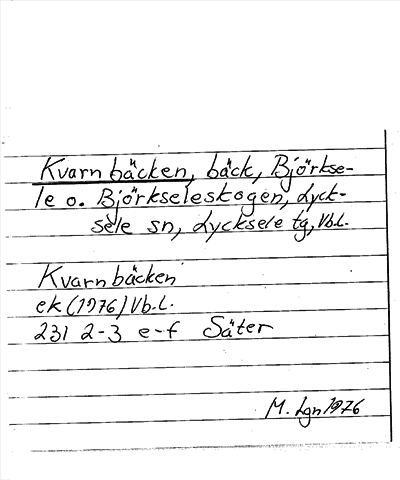 Kvarnbäcken, bäck, Björkse-
le o. Björkseleskogen, Lyck-
sele sn, Lycksele tg, Vb.l.
Kvarnbäcken
ek (1976) Vb.l.
231 2-3 e-f Säter
M. Lgn 1976